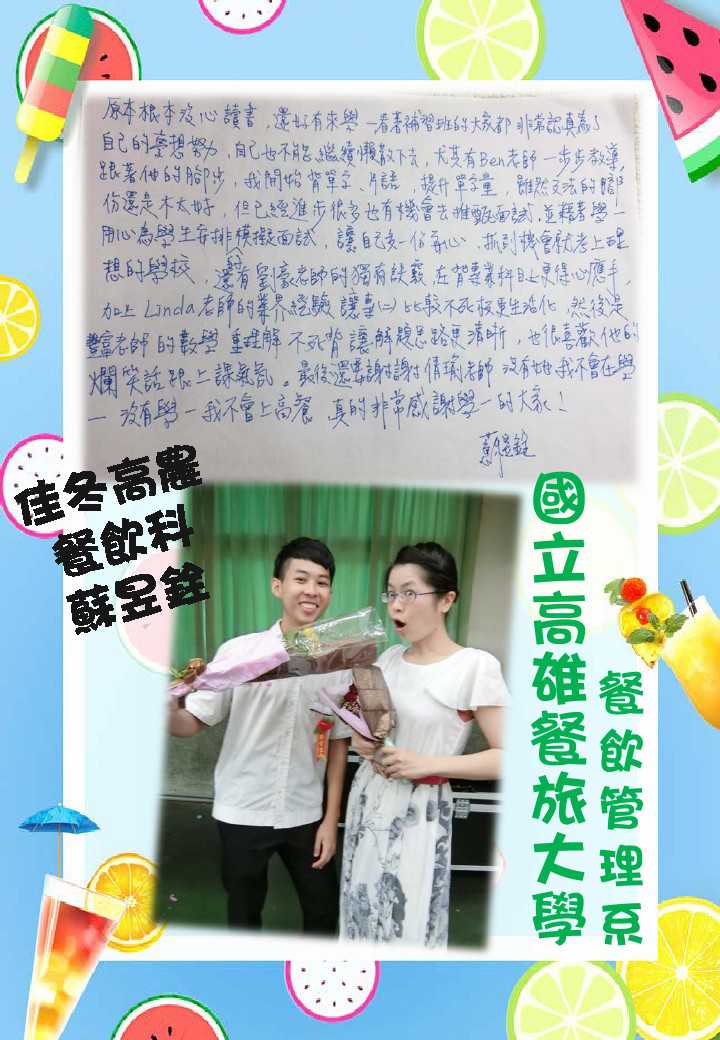 原本根本沒心讀書，還好有來學一看著補習班的大家都非常認真為了
自己的夢想努力，自己也不能繼續懶散下去，尤其有Ben老師一步步教導，
跟著他的腳步，我開始背單字、片語，提升單字量，雖然文法的部
份還是不太好，但已經進步很多也有機會去推甄面試，並藉著學一
用心為學生安排模擬面試，讓自己多一份信心，抓到機會就考上理
想的學校，還有劉豪老師的獨有訣竅，在背專業科目上更得心應手，
加上Linda老師的業界經驗讓專(二)比較不死板更生活化，然後是
豐富老師的數學重理解不死背讓解題思路更清晰，也很喜歡他的
爛笑話跟上課氣氛。最後還要謝謝倩瑜老師沒有她我不會在學
一沒有學一我不會上高餐 真的非常感謝學一的大家！
蘇昱銓
佳冬高農
餐飲科
蘇昱銓
國立高雄餐旅大學
餐飲管理系